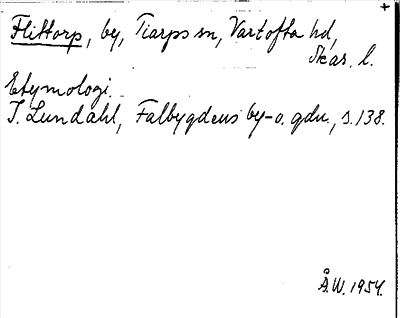 +
Flittorp, by, Tiarps sn, Vartofta hd,
Skar. l.
Etymologi.
I. Lundahl, Falbygdens by-o. gdn., s. 138.
Å.W. 1954.